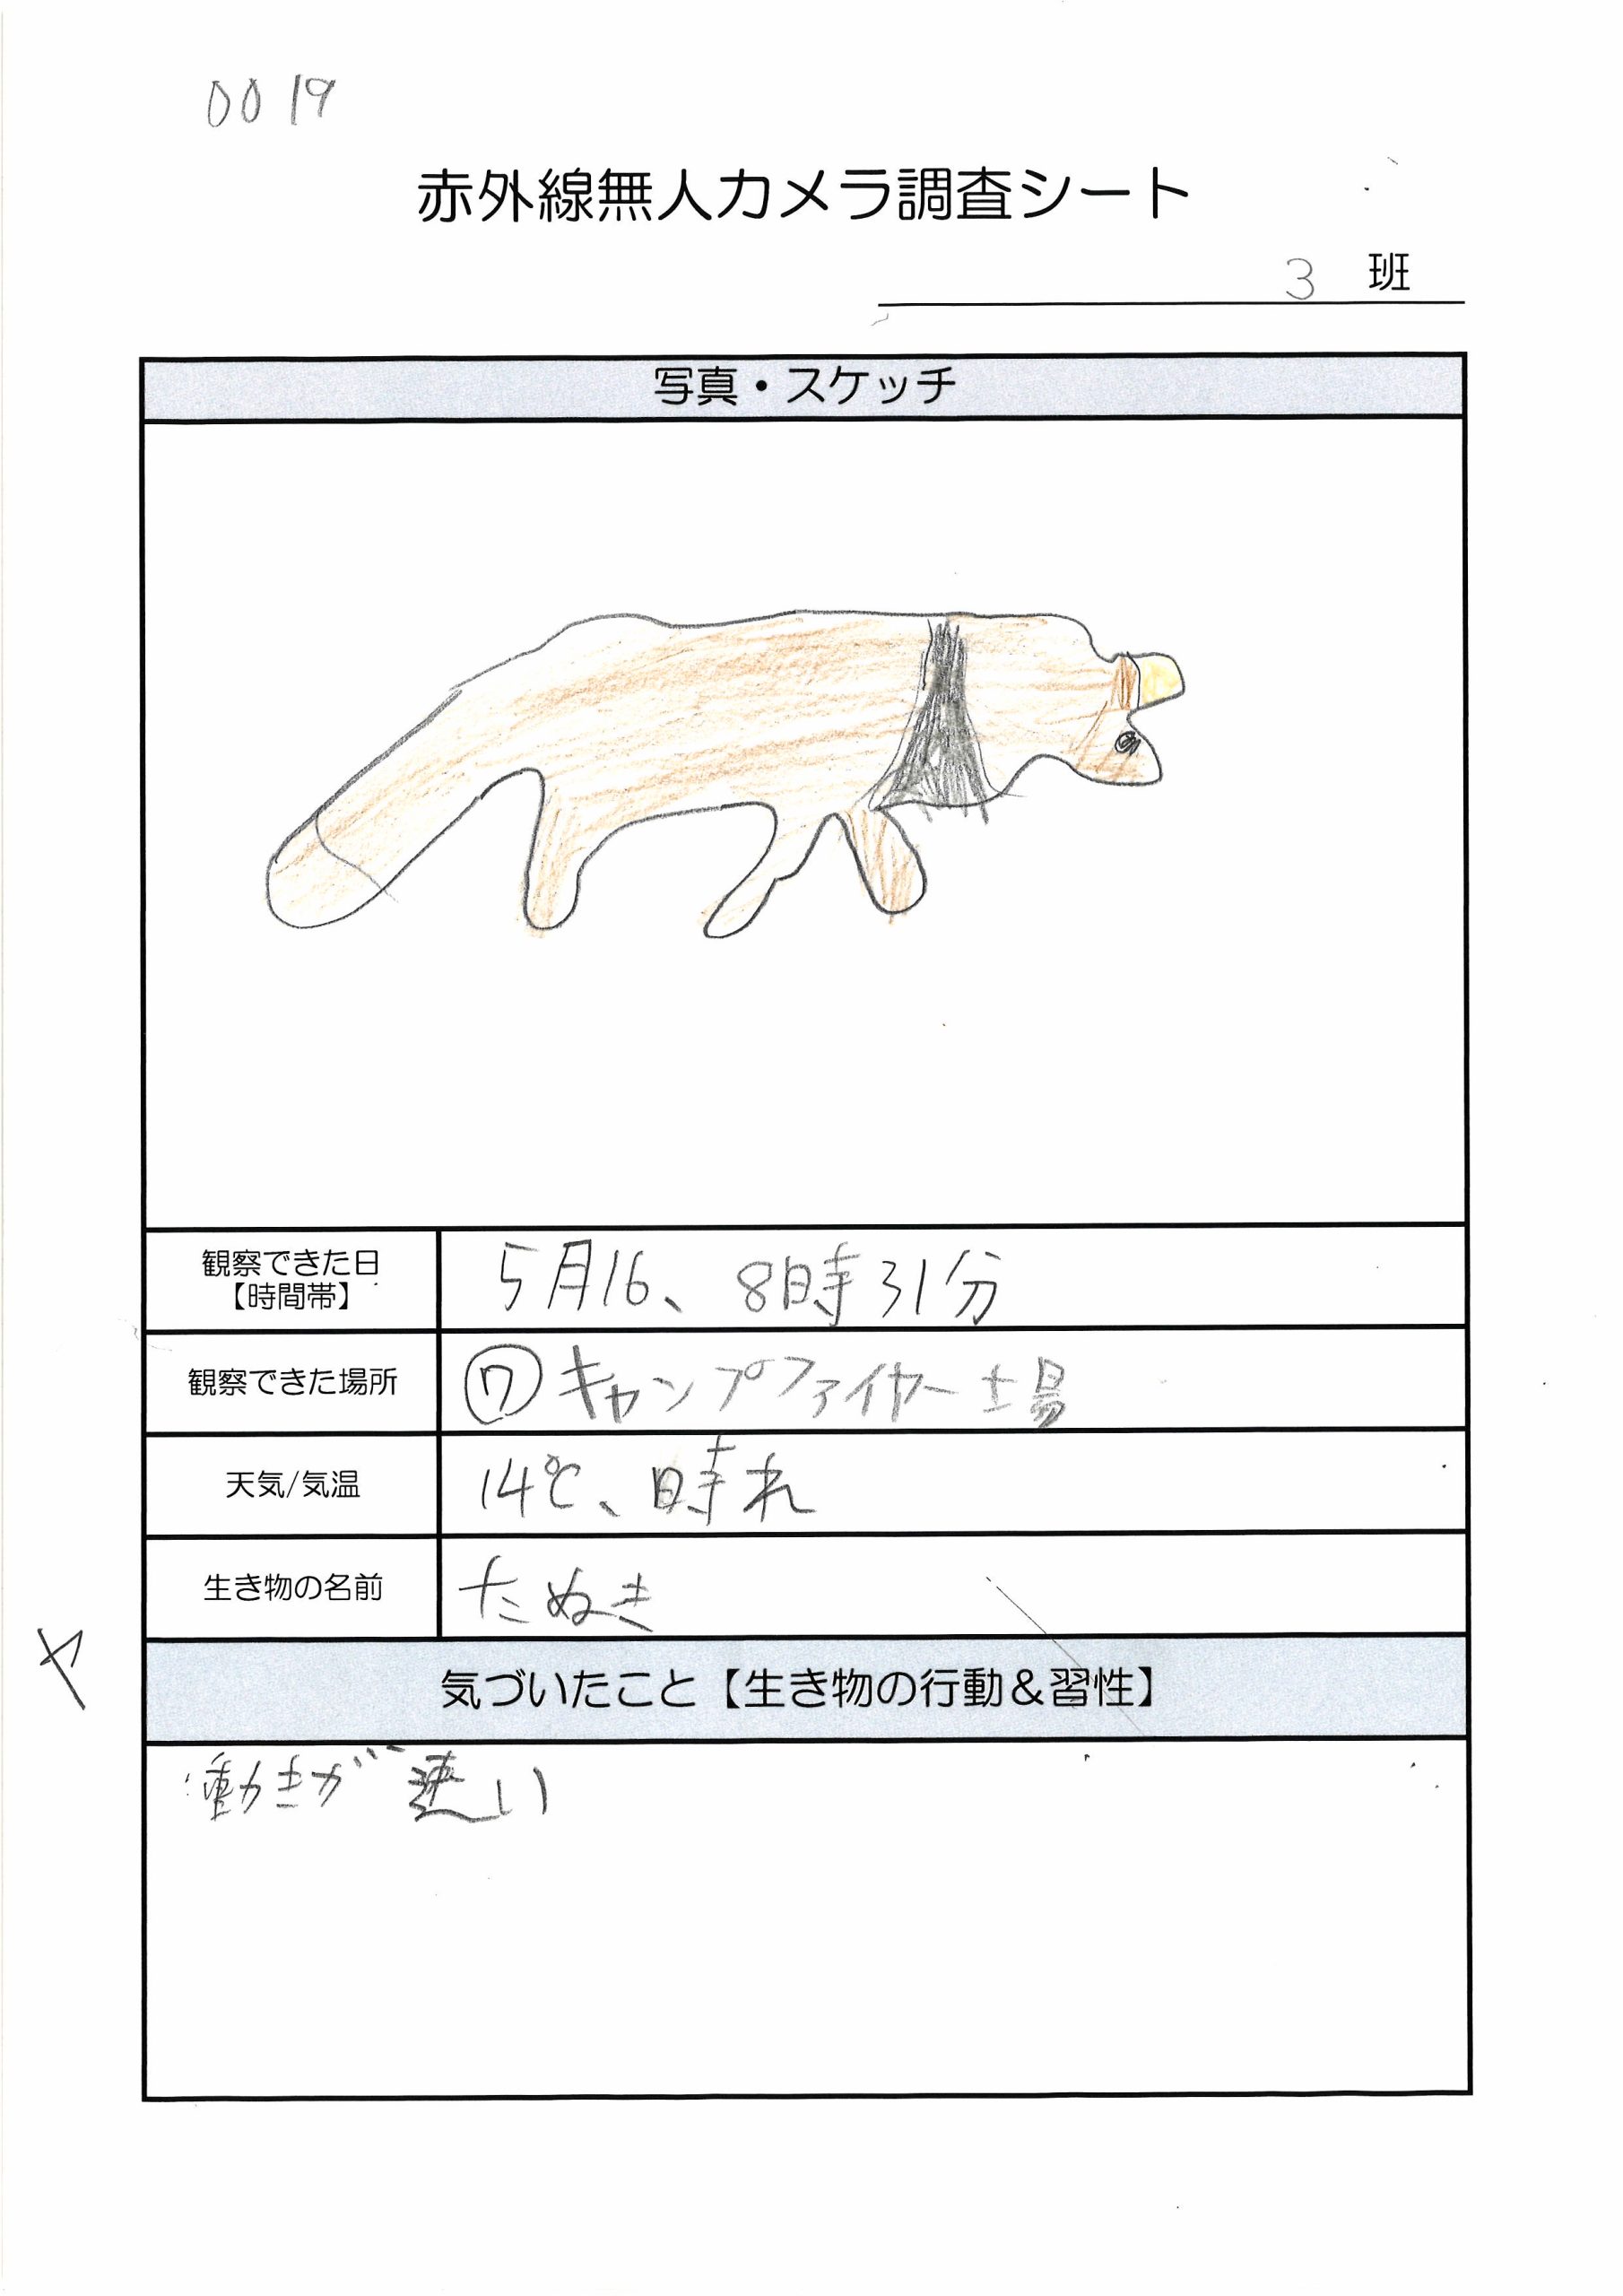 0019
赤外線無人カメラ調査シート
3 班
写真・スケッチ
観察できた日
【時間帯】
5月16、8時31分
観察できた場所
⑦キャンプファイヤー場
天気/気温
14℃、時れ
生き物の名前
たぬき
ヤ
気づいたこと【生き物の行動&習性】
動きが速い